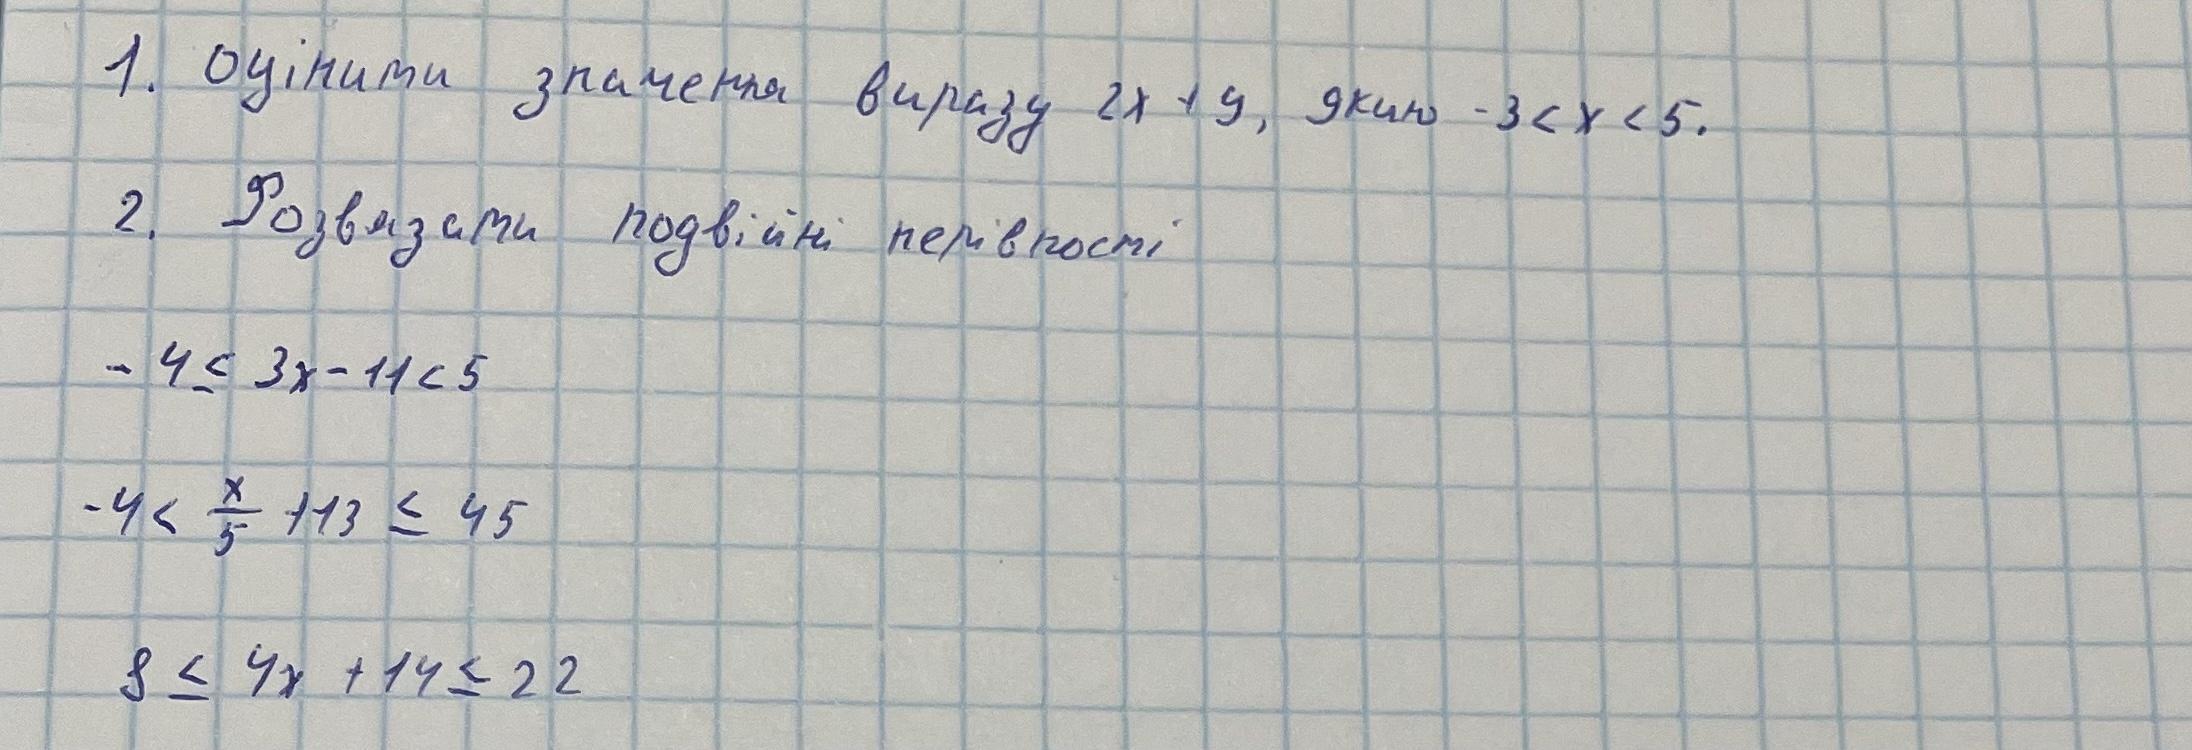 1. Оцінити значення виразу 2x + 9, якщо -3 < x < 5.
2. Розвязати подвійні нерівності
- 4 ≤ 3x - 11 < 5
-4 < x/5 + 13 ≤ 45
8 ≤ 4x + 14 ≤ 22